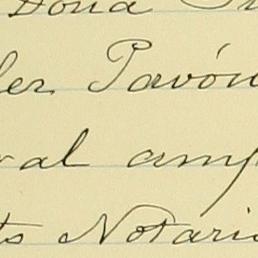 Doña
ler Pavón
ral amp
ts Notari